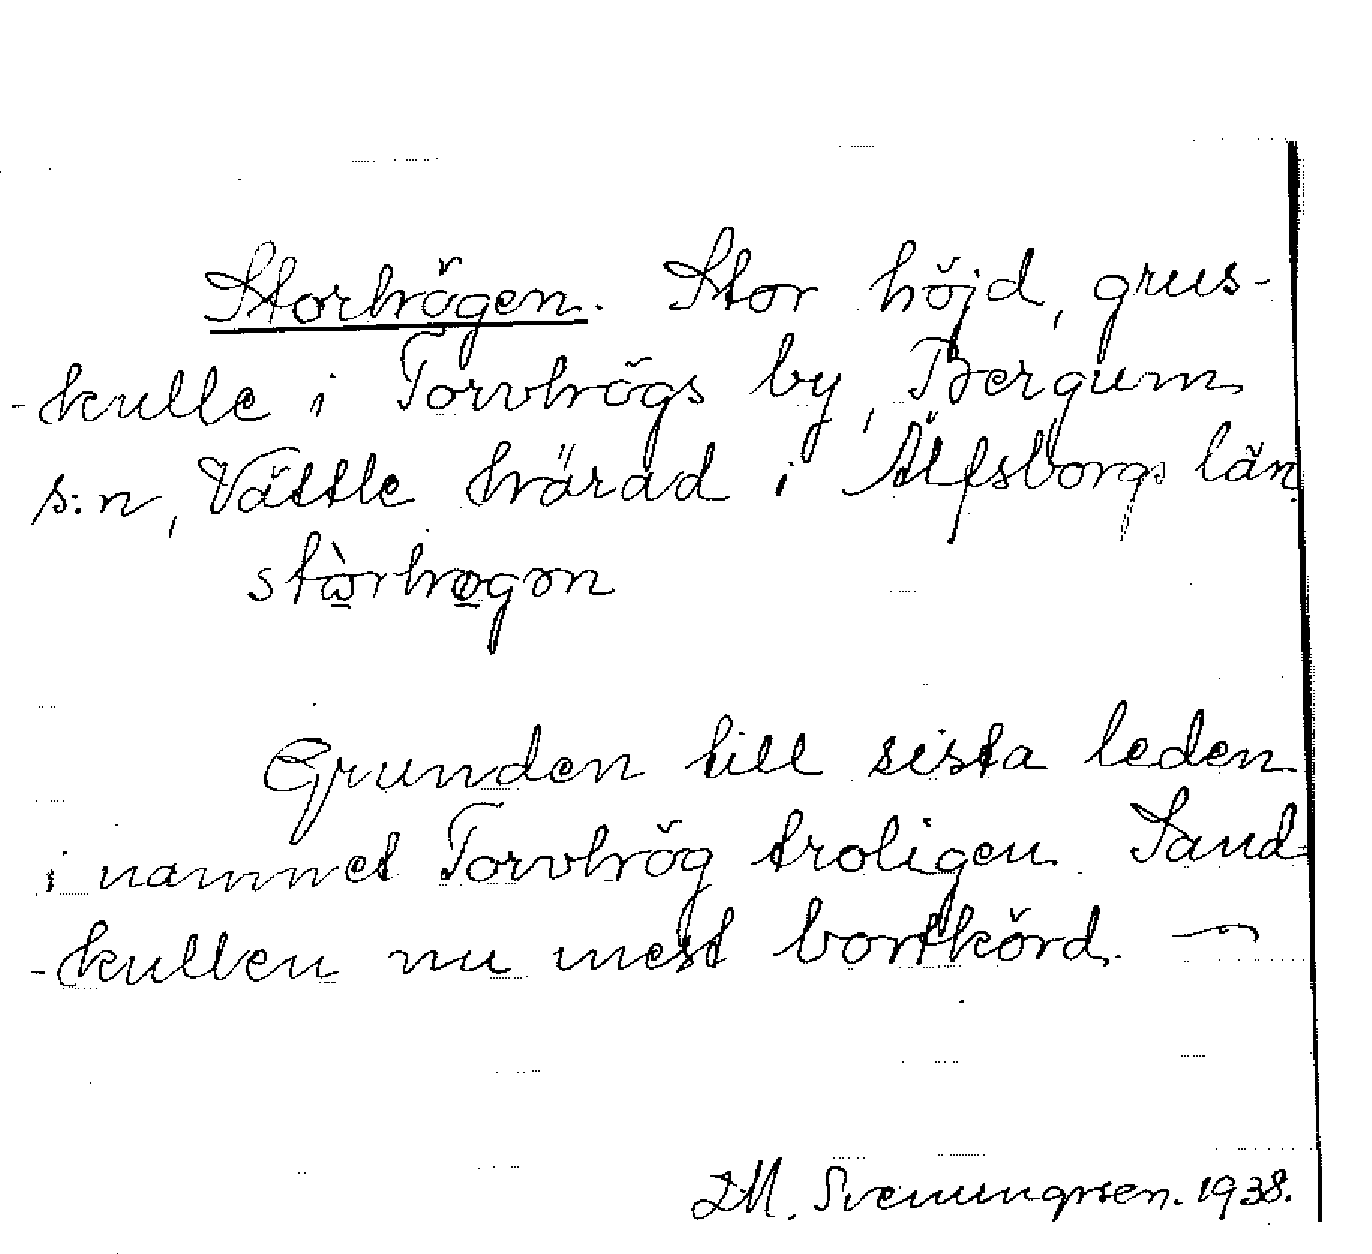 Storhögen. Stor höjd, grus-
-kulle i Torvhögs by, Bergum
s:n, Vättle härad i Älfsborgs län.
Grunden till sista leden
i namnet Torvhög troligen. Sand-
-kullen nu mest bortkörd. —
Svenungsen. 1938.